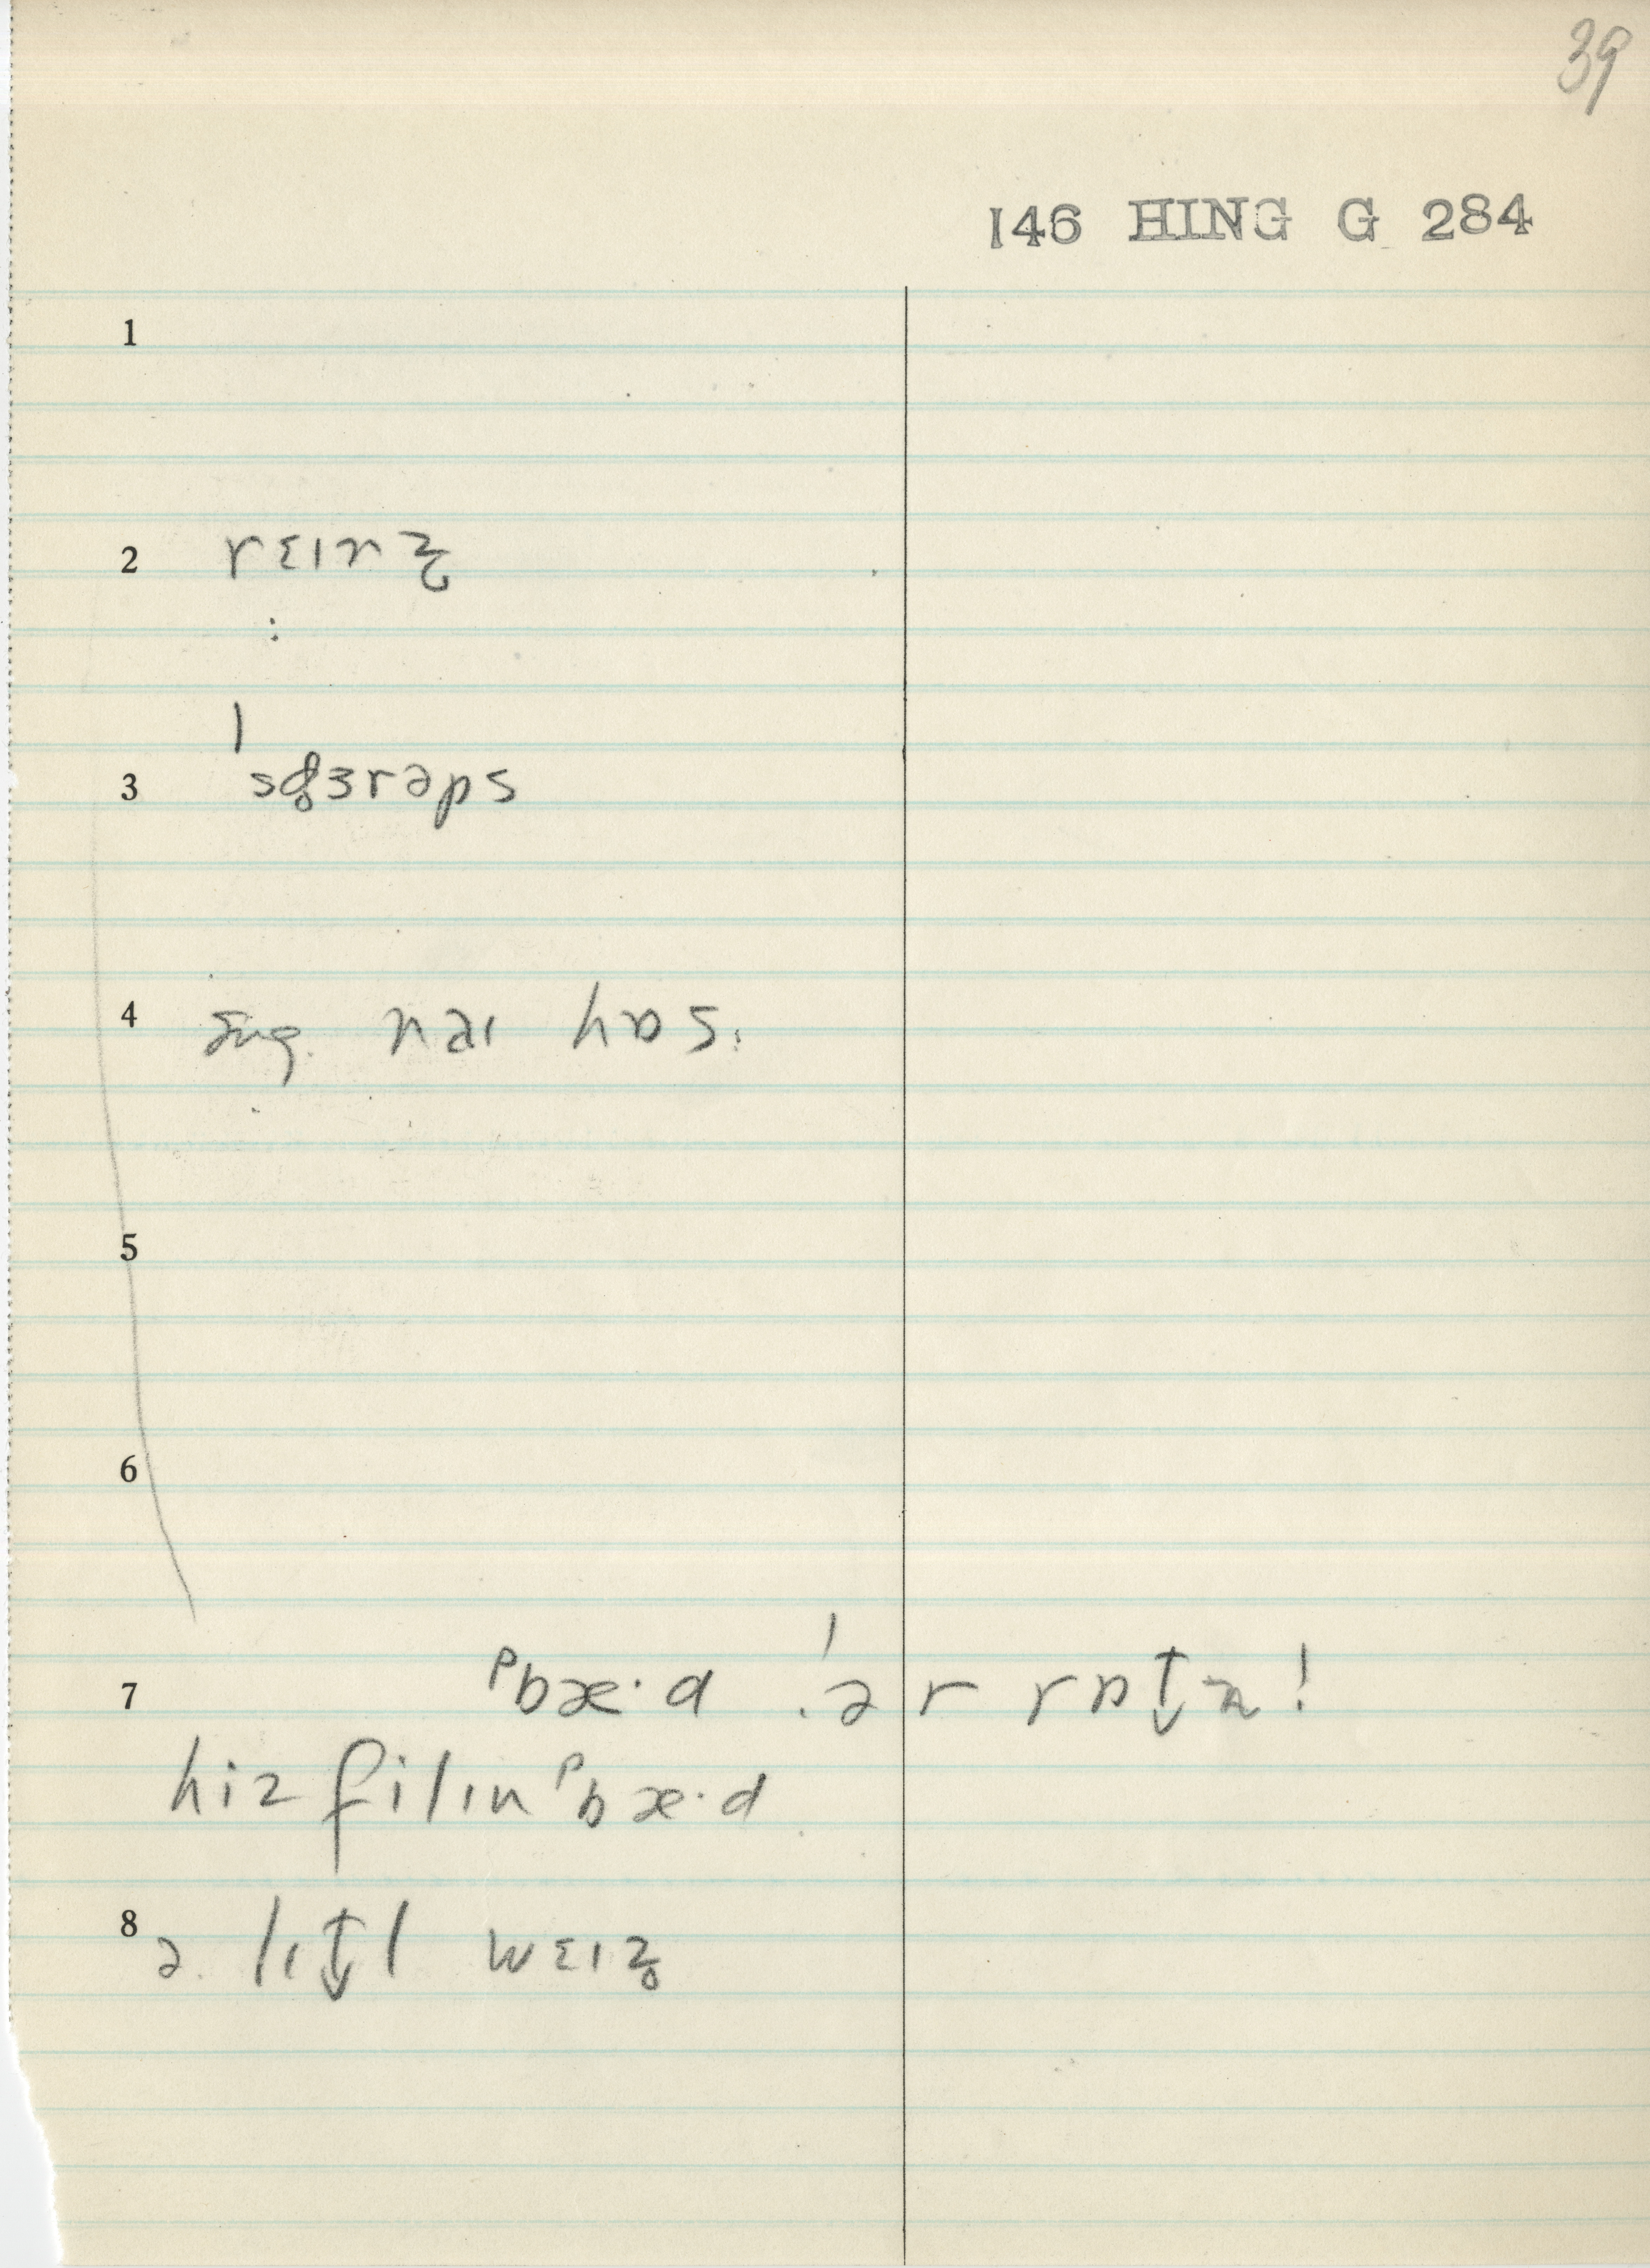 39
146 HING G 284
1
2 rɛɪnz̥
:
3 ˈsd̥ɜrəps
4 sng. nəɪ hɒs:
5
6
7 ᵖbæ·d .ˈər rɒt̬n!
hiz filɪn ᵖbæ·d
8 ə. lɪt̬l wɛɪz̥